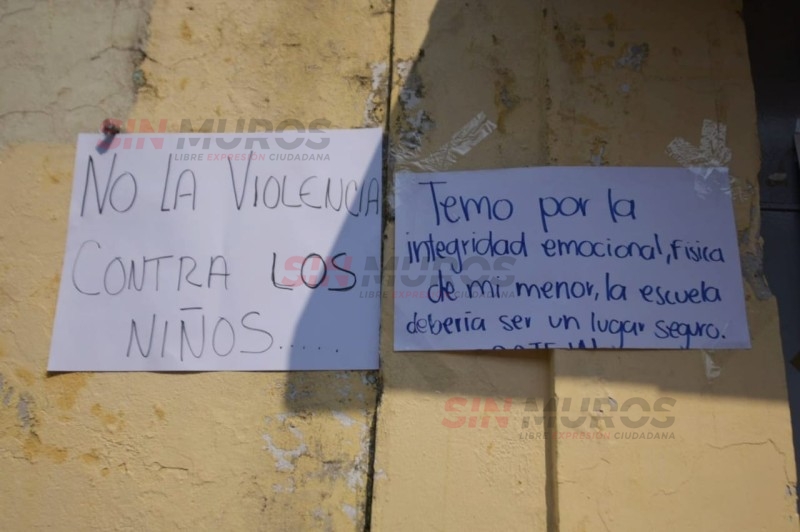 NO LA VIOLENCIA
CONTRA LOS
NIÑOS.....
Temo por la
integridad emocional, física
de mi menor, la escuela
debería ser un lugar seguro.
SIN MUROS
LIBRE EXPRESIÓN CIUDADANA
SIN MUROS
LIBRE EXPRESIÓN CIUDADANA
SIN MUROS
LIBRE EXPRESIÓN CIUDADANA